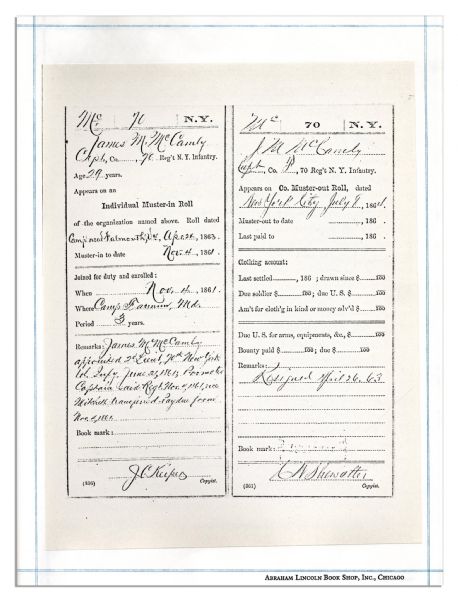 Mc 70 N.Y.
James M. McCamly
Capt, Co. , 70 Reg't N.Y. Infantry.
Age 29 years.
Appears on an
Individual Muster-in Roll
of the organization named above. Roll dated
Camp near Falmouth, Va. , 1863.
Muster-in to date Nov. 4, 1861.
Joined for duty and enrolled:
When Nov. 4, 1861.
Where Camp , Md.
Period 3 years.
Remarks: James M. McCamly
appointed 2d Lieut, New York
Vol. Infy. June Promoted
Captain said Regt Nov. 4, 1861, vice
transferred. Pay due from
Nov. 4, 1861.
Book mark:
(356) Copyist.
Mc 70 N.Y.
J. M. McCamly
Capt, Co. , 70 Reg't N.Y. Infantry.
Appears on Co. Muster-out Roll, dated
New York City July 8, 1864.
Muster-out to date , 186 .
Last paid to , 186 .
Clothing account:
Last settled , 186 ; drawn since $ 100
Due soldier $ 100; due U.S. $ 100
Am't for cloth'g in kind or money adv'd $ 100
Due U.S. for arms, equipments, &c., $ 100
Bounty paid $ 100; due $ 100
Remarks:
Resigned April 26. 63
Book mark:
(361) Copyist.
Abraham Lincoln Book Shop, Inc., Chicago